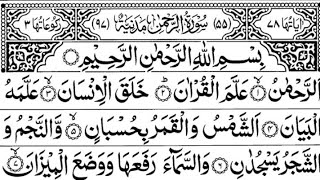 اٰيَاتُهَا ٧٨ (٥٥) سُوْرَةُ الرَّحْمٰنِ مَدَنِيَّةٌ (٩٧) رُكُوْعَاتُهَا ٣
بِسْمِ اللّٰهِ الرَّحْمٰنِ الرَّحِيْمِ
اَلرَّحْمٰنُ ۙ‏ ١ عَلَّمَ الْقُرْاٰنَ ؕ‏ ٢ خَلَقَ الْاِنْسَانَ ۙ‏ ٣ عَلَّمَهُ
الْبَيَانَ ٤ اَلشَّمْسُ وَ الْقَمَرُ بِحُسْبَانٍ ۪‏ ٥ وَّ النَّجْمُ وَ
الشَّجَرُ يَسْجُدٰنِ ٦ وَ السَّمَآءَ رَفَعَهَا وَ وَضَعَ الْمِيْزَانَ ۙ‏ ٧